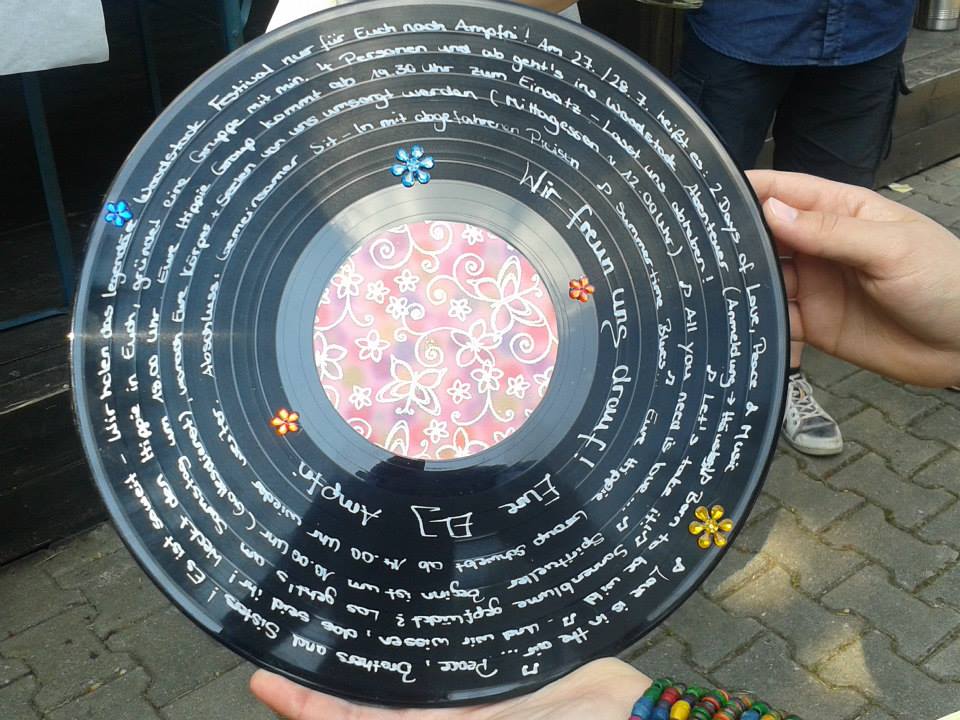 Es ist soweit - Wir holen das legendäre Woodstock Festival nur für Euch nach Ampfin! Am 27./28.7. heißt es: 2 Days of Love, Peace & Music ♫ Love is in the air... ♫
Peace, Brothers and Sisters! Weckt den Hippie in Euch, gründet eine Gruppe mit min. 4 Personen und ab geht's ins Woodstock Abenteuer (Anmeldung → Born to be wild - Und wir wissen, das seid ihr!
Las geht's am Samstag um 18.00 Uhr Eure Hippie Group kommt ab 19.30 Uhr zum Einsatz - Lasst uns abheben! ♫ Let's take it! ♫ Sonnenblume gepflückt?
10.00 Uhr (Gottesdienst), wonach Eure Körper + Seelen von uns umsorgt werden (Mittagessen 12.00 Uhr) ♫ All you need is love... ♫ Spiritueller Beginn ist um
Eure Hippie Group schwebt ab 14.00 Uhr wieder weiter. Abschluss: Gemeinsamer Sit-In mit abgefahrenen Preisen ♫ Summertime Blues ♫
Wir freun uns drauf!
Eure ELJ
Ampfin